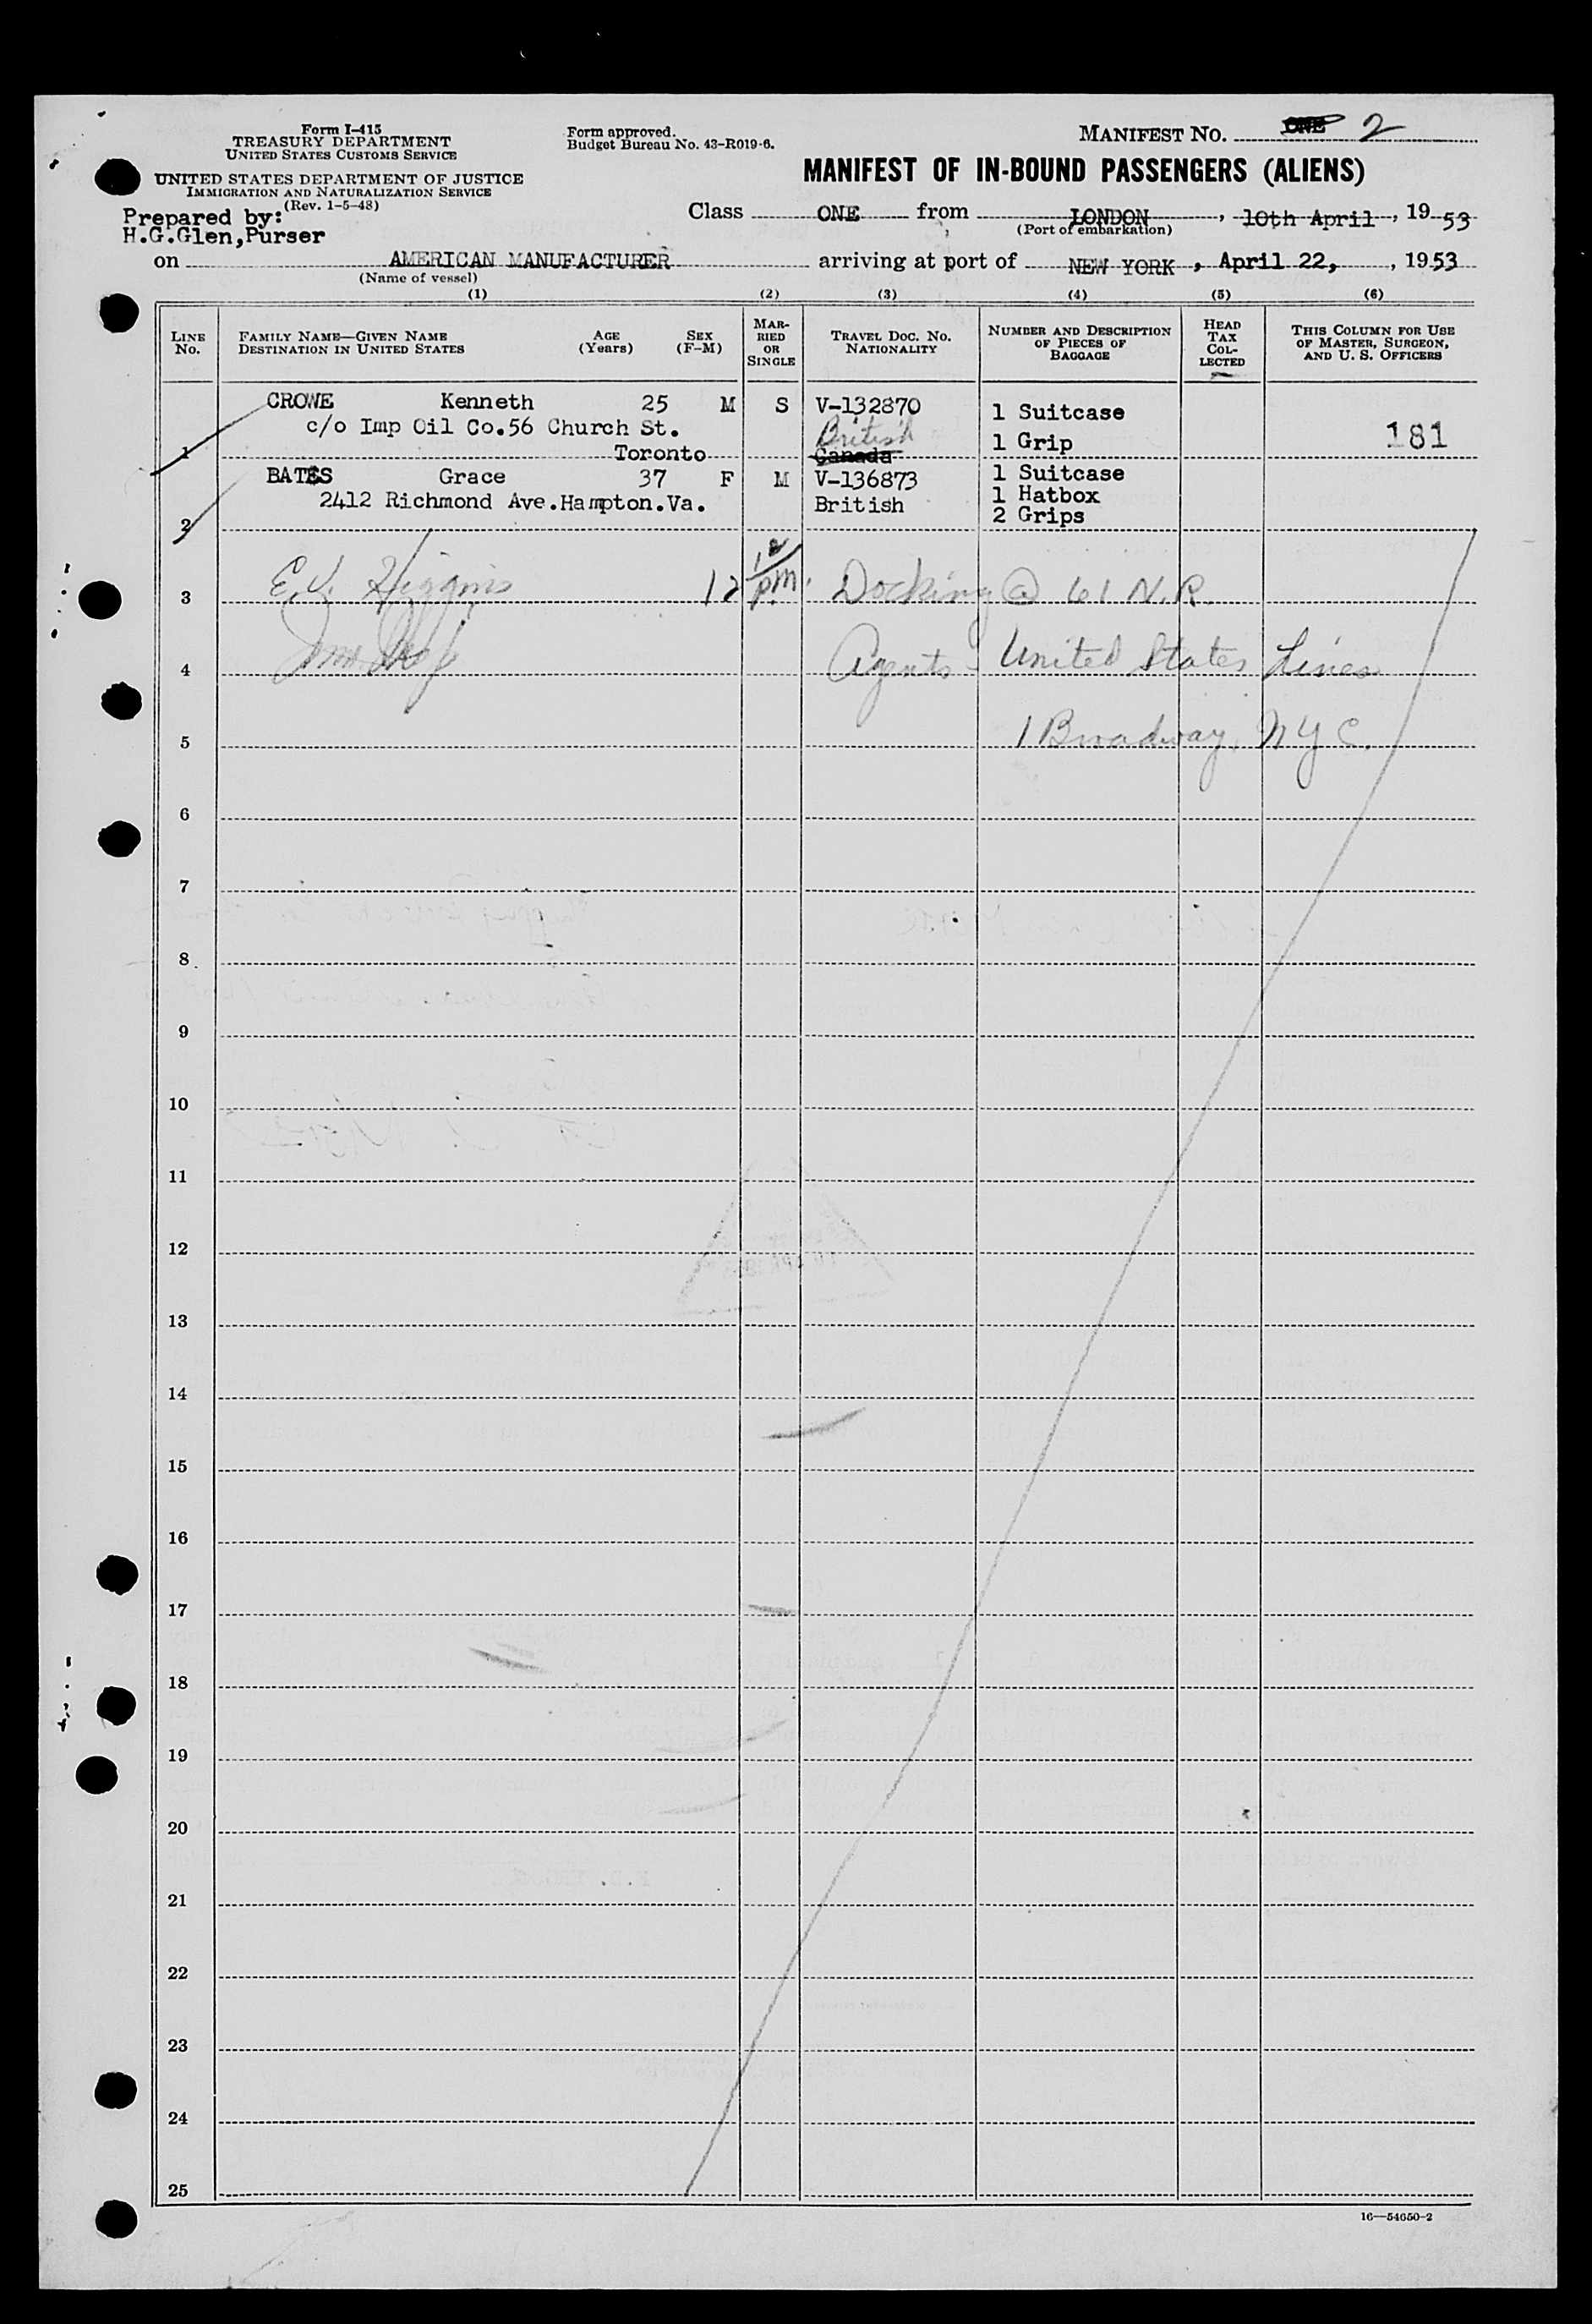 Form I-415
TREASURY DEPARTMENT
UNITED STATES CUSTOMS SERVICE
UNITED STATES DEPARTMENT OF JUSTICE
IMMIGRATION AND NATURALIZATION SERVICE
(Rev. 1-5-48)
Prepared by:
H.G.Glen,Purser
Form approved.
Budget Bureau No. 43-R019-6.
MANIFEST NO. ONE 2
MANIFEST OF IN-BOUND PASSENGERS (ALIENS)
Class ONE from LONDON, 10th April, 19 53
(Port of embarkation)
on AMERICAN MANUFACTURER arriving at port of NEW YORK, April 22, , 1953
(Name of vessel)
(1) (2) (3) (4) (5) (6)
LINE NO.
FAMILY NAME—GIVEN NAME
DESTINATION IN UNITED STATES
AGE (Years)
SEX (F-M)
MARRIED OR SINGLE
TRAVEL DOC. NO. NATIONALITY
NUMBER AND DESCRIPTION OF PIECES OF BAGGAGE
HEAD TAX COLLECTED
THIS COLUMN FOR USE OF MASTER, SURGEON, AND U. S. OFFICERS
CROWE Kenneth 25 M S V-132870 1 Suitcase
c/o Imp Oil Co.56 Church St. British 1 Grip 181
1 Toronto Canada
BATES Grace 37 F M V-136873 1 Suitcase
2412 Richmond Ave.Hampton.Va. British 1 Hatbox
2 2 Grips
3 E.V. Higgins 12 12/pm. Docking @ 61 N.R.
4 Agents - United States Lines
5 1 Broadway, NYC.
6
7
8
9
10
11
12
13
14
15
16
17
18
19
20
21
22
23
24
25
16—54650-2